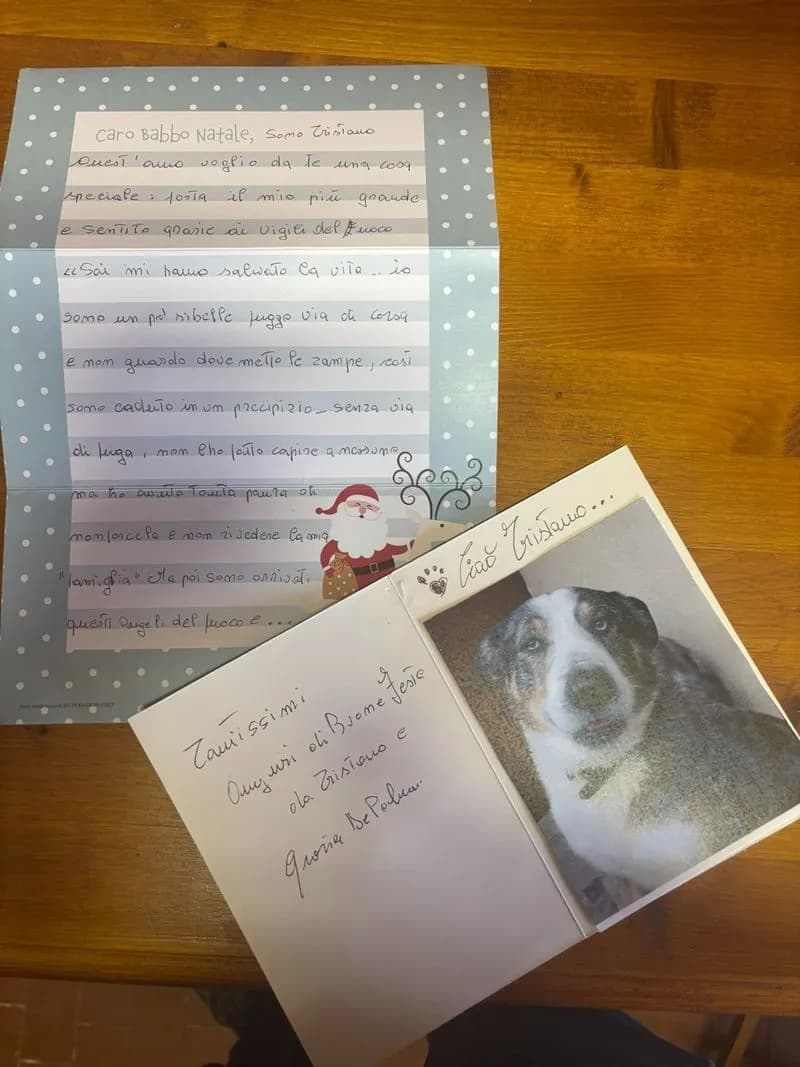 Caro Babbo Natale, sono Tristano
Quest'anno voglio da te una cosa
speciale: porta il mio più grande
e sentito grazie ai vigili del fuoco
"Sai mi hanno salvato la vita.. io
sono un pò ribelle fuggo via di corsa
e non guardo dove metto le zampe, così
sono caduto in un precipizio_ senza via
di fuga, non l'ho fatto capire a nessuno
ma ho avuto tanta paura di
non farcela e non rivedere la mia
"famiglia" Ma poi sono arrivati
questi angeli del fuoco e ...
Ciao Tristano...
Tantissimi
Auguri di Buone Feste
da Tristano e
Grazia De Palma